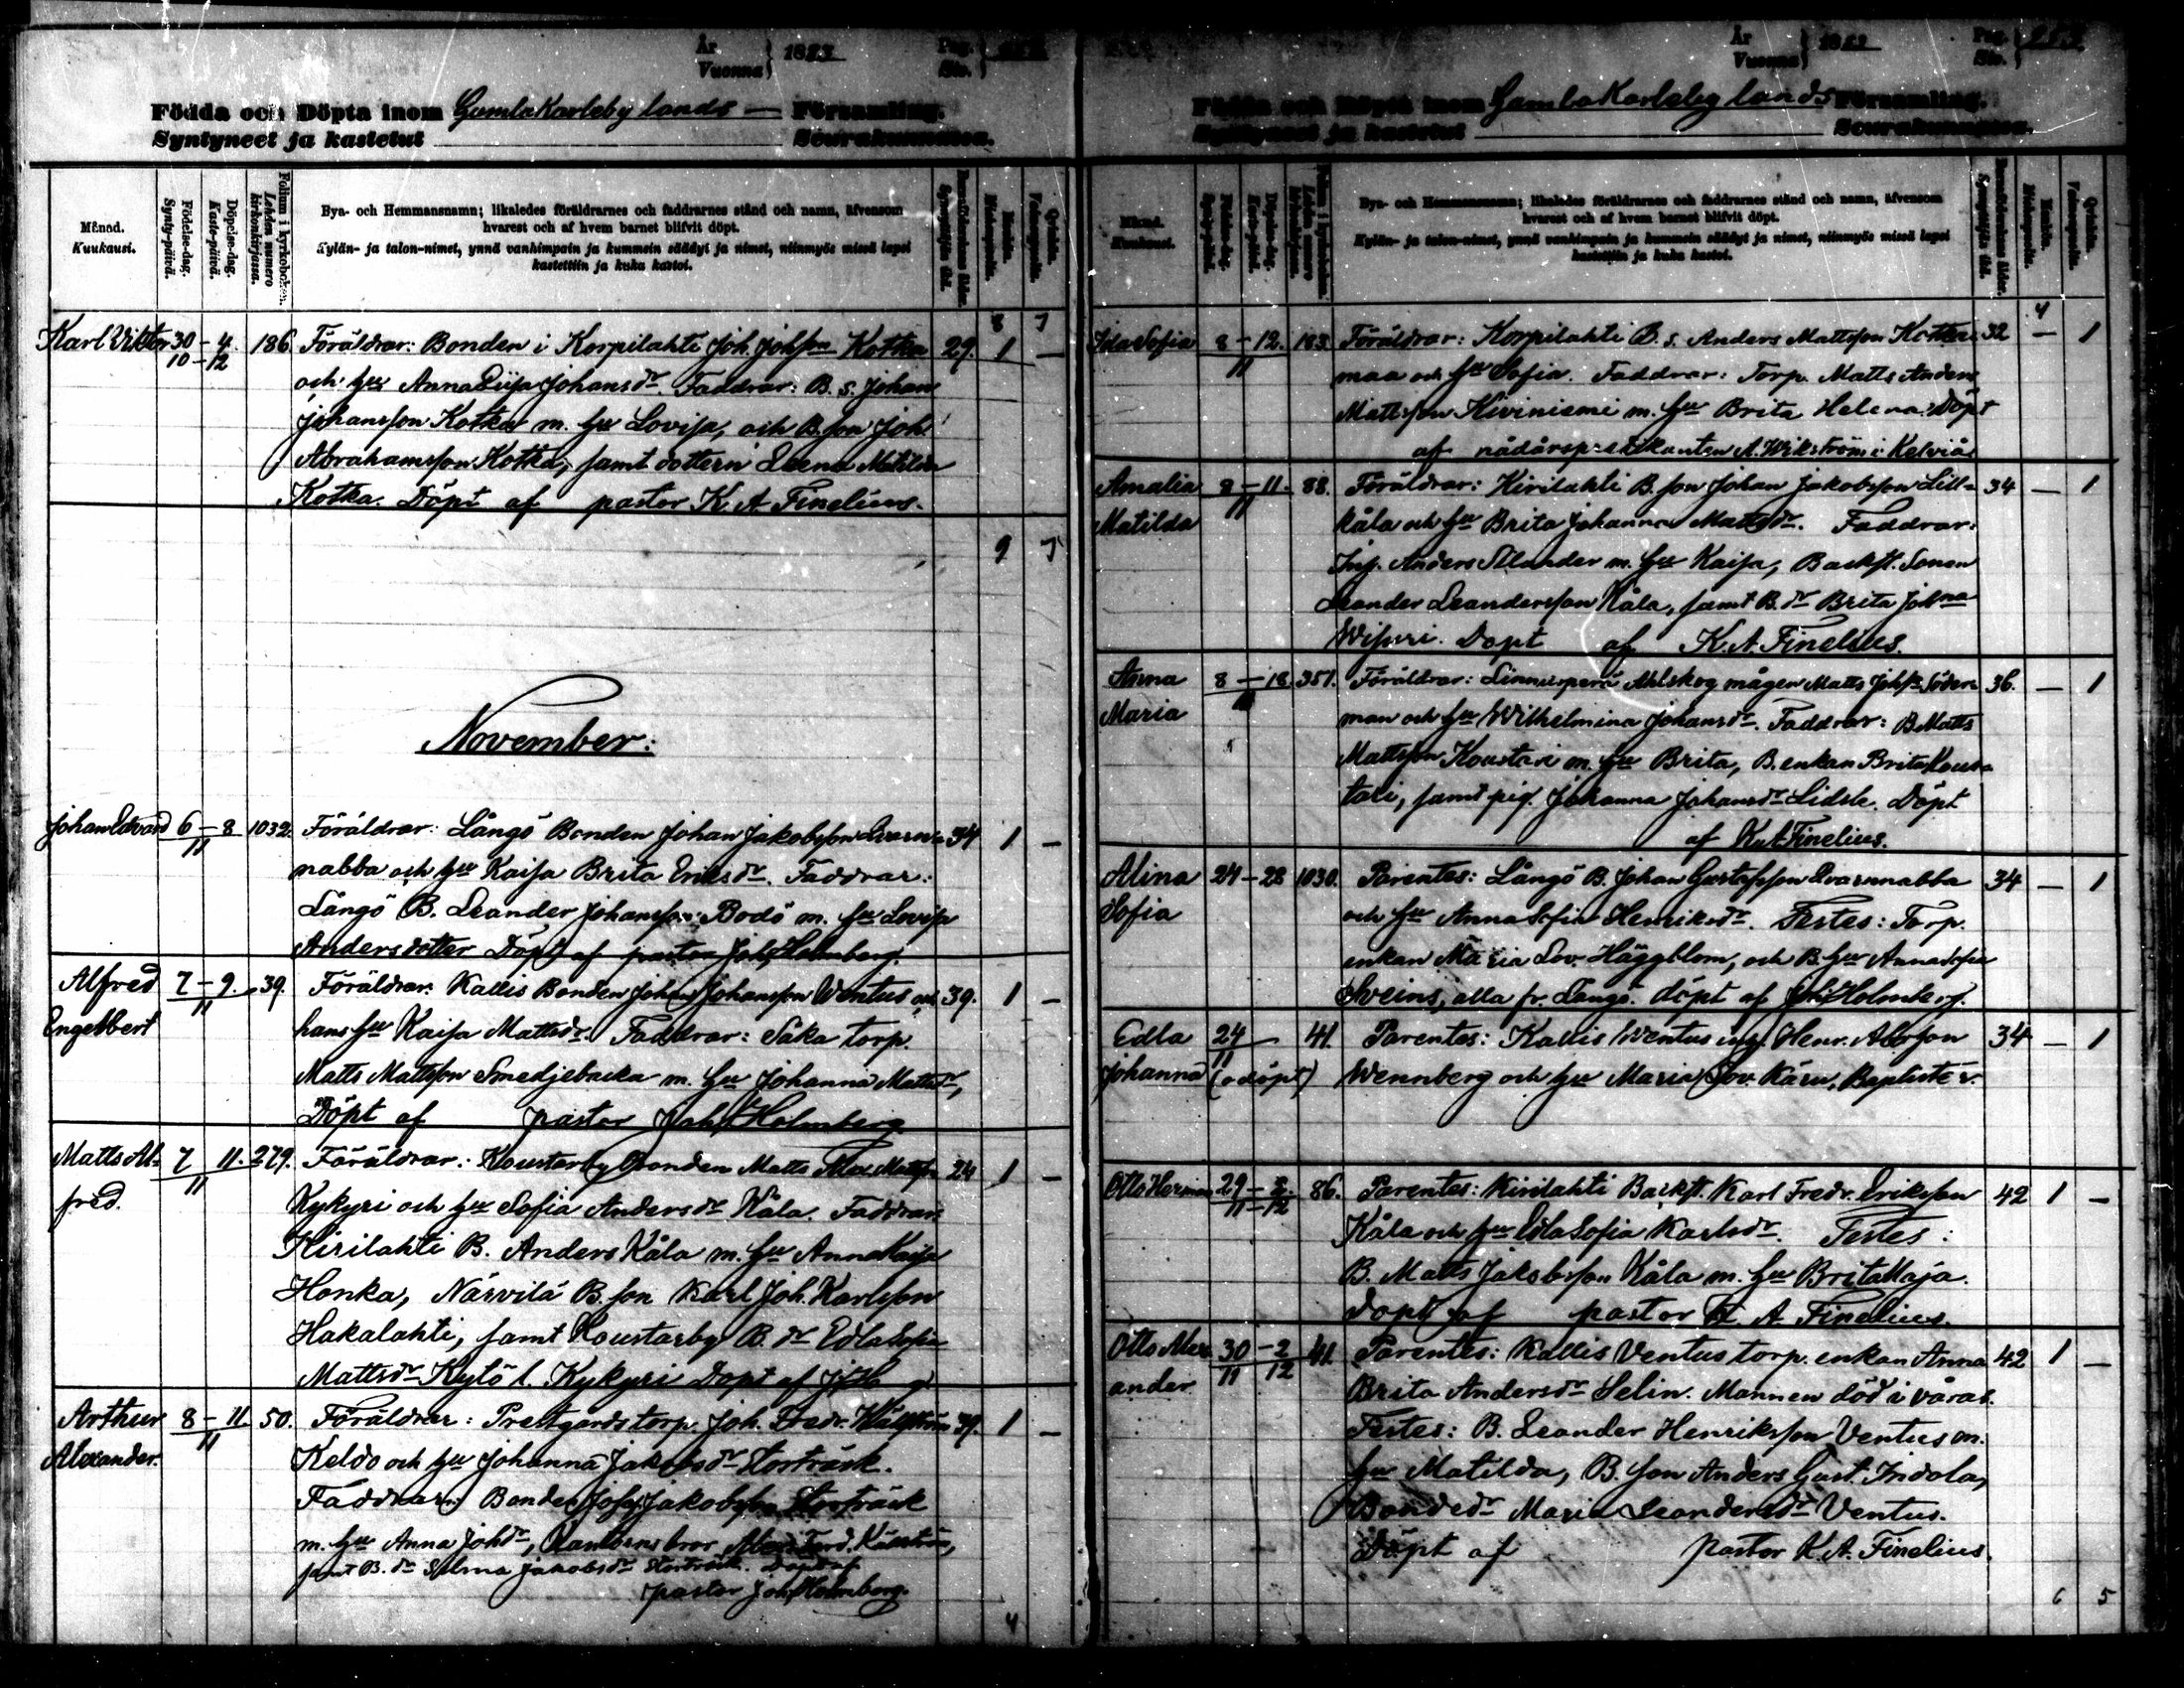 År
Vuonna } 1883
Pag.
Siv.
Födda och Döpta inom Gamlakarleby lands — Församling.
Syntyneet ja kastetut Seurakunnassa.
Månad.
Kuukausi.
Födelse-dag.
Synty-päivä.
Döpelse-dag.
Kaste-päivä.
Folium i kyrkoboken.
Lehden numero kirkonkirjassa.
Bya- och Hemmansnamn; likaledes föräldrarnes och faddrarnes stånd och namn, äfvensom
hvarest och af hvem barnet blifvit döpt.
Kylän- ja talon-nimet, ynnä vanhimpain ja kummein säädyt ja nimet, niinmyös missä lapsi
kastettiin ja kuka kastoi.
8 7
Karl Viktor 30 – 4. 186. Föräldrar: Bonden i Korpilahti Joh. Johsson Kotka 29. 1 —
10 – 12 och hu Anna Liisa Johansdr. Faddrar: B. s. Johan
Johansson Kotka m. hu Lovisa, och B. son Joh.
Abrahamsson Kotka, samt dottern Leena Matilda
Kotka. Döpt af pastor K. A Finelius.
9 7
November:
Johan Edvard 6 – 8 1032. Föräldrar: Långö Bonden Johan Jakobsson Svarn- 34 1 —
11 nabba och hu Kaisa Brita Eriksdr. Faddrar:
Långö B. Leander Johansson Bodö m. hu Lovisa
Andersdotter Döpt af pastor Joh. Holmberg.
Alfred 7 – 9. 39. Föräldrar: Kallis Bonden Johans Johansson Ventus och 39. 1 —
Engelbert 11 hans hu Kaisa Mattsdr. Faddrar: Såka torp.
Matts Mattsson Smedjebacka m. hu Johanna Mattsdr,
Döpt af pastor Joh. Holmberg
Matts Al- 7 11. 279. Föräldrar: Koustarby Bonden Matts Alex. Mattss. 24 1 —
fred. 11 Kykyri och hu Sofia Andersdr Kåla. Faddrar:
Kirilahti B. Anders Kåla m. hu Anna Kaisa
Honka, Närvilä B. son Karl Joh. Karlsson
Hakalahti, samt Koustarby B. dr Edla Sofia
Mattsdr Kytö l. Kykyri Döpt af
Arthur 8 – 11 50. Föräldrar: Prestgårds torp. Joh. Fredr. 39. 1 —
Alexander. 11 Keldo och hu Johanna Jakobsdr Storträsk.
Faddrar: Bonden Josef Jakobsson Storträsk
m. hu Anna Johdr, bror Ferd.
samt B. dr Selma Jakobsdr Storträsk. Döpt af
pastor Joh. Holmberg.
4
År
Vuonna } 1883
Pag.
Siv.
Födda och Döpta inom Gamla Karleby lands Församling.
Syntyneet ja kastetut Seurakunnassa.
Månad.
Kuukausi.
Bya- och Hemmansnamn; likaledes föräldrarnes och faddrarnes stånd och namn, äfvensom
hvarest och af hvem barnet blifvit döpt.
Kylän- ja talon-nimet, ynnä vanhimpain ja kummein säädyt ja nimet, niinmyös missä lapsi
kastettiin ja kuka kastoi.
4
Ida Sofia 8 – 12. 183. Föräldrar: Korpilahti B. s. Anders Mattsson Kotka- 32 — 1
11 maa och hu Sofia. Faddrar: Torp. Matts Anders
Mattsson Kiviniemi m. hu Brita Helena. Döpt
af nådårspredikanten A. Wikström i Kelviå
Amalia 8 – 11. 88. Föräldrar: Kirilahti B. son Johan Jakobsson Lill- 34 — 1
Matilda 11 kåla och hu Brita Johanna Mattsdr. Faddrar:
Inh. Anders Ålander m. hu Kaisa, Backst. Sonen
Leander Leandersson Kåla, samt B. dr Brita Johna
Wisuri. Döpt af K. A. Finelius.
Anna 8 – 18. 351. Föräldrar: Linnusperä Ahlskog mågen Matts Johss. Söder- 36. — 1
Maria 11 man och hu Wilhelmina Johansdr. Faddrar: B. Matts
Mattsson Koustari m. hu Brita, B. enkan Brita Kous-
tari, samt pig. Johanna Johansdr Lidsle. Döpt
af K. A Finelius.
Alina 24 – 28 1030. Parentes: Långö B. Johan Gustafsson Svarnnabba 34 — 1
Sofia och hu Anna Sofia Henriksdr. Testes: Torp.
enkan Maria Lov. Häggblom, och B. hu Anna Sofia
Sveins, alla fr. Långö. döpt af Joh. Holmberg.
Edla 24 41. Parentes: Kallis Ventus ing. Henr. Abrsson 34 — 1
Johanna 11 (odöpt) Wennberg och hu Maria Lov. Käru, Baptister.
Otto Herman 29 – 2. 86. Parentes: Kirilahti Backst. Karl Fredr. Eriksson 42 1 —
11 – 12 Kåla och hu Edla Sofia Karlsdr. Testes:
B. Matts Jakobsson Kåla m. hu Brita Maja.
döpt af pastor K A Finelius.
Otto Alex- 30 – 2 41. Parentes: Kallis Ventus torp. enkan Anna 42 1 —
ander. 11 12 Brita Andersdr Selin. Mannen död i våras.
Testes: B. Leander Henriksson Ventus m.
hu Matilda, B. son Anders Gust. Indola,
Bondedr Maria Leandersdr Ventus.
Döpt af pastor K. A. Finelius.
6 5